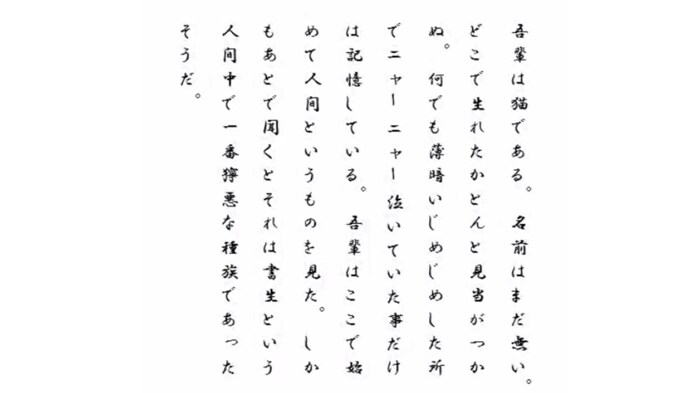 吾輩は猫である。名前はまだ無い。
どこで生れたかとんと見当がつか
ぬ。何でも薄暗いじめじめした所
でニャーニャー泣いていた事だけ
は記憶している。吾輩はここで始
めて人間というものを見た。しか
もあとで聞くとそれは書生という
人間中で一番獰悪な種族であった
そうだ。